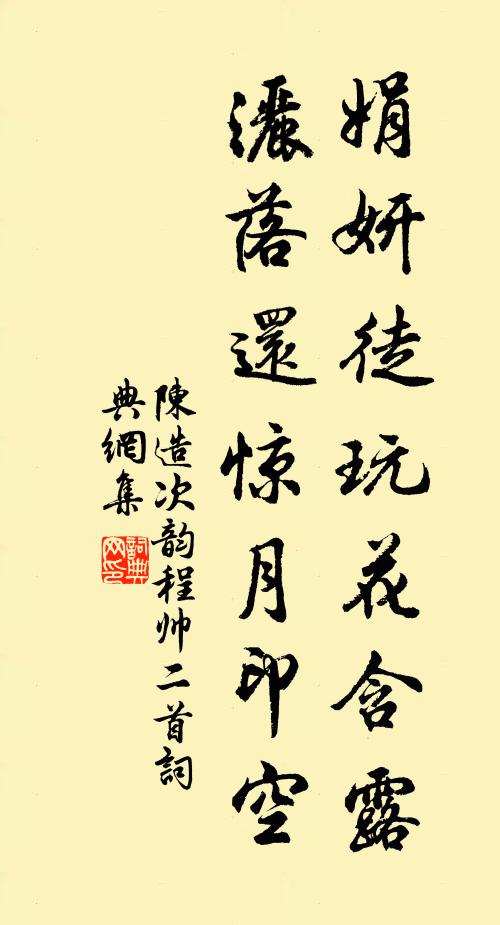 娟妍徒玩花含露
灑落還惊月印空
陳造次韵程帅二首詞
典網集
詞典网印